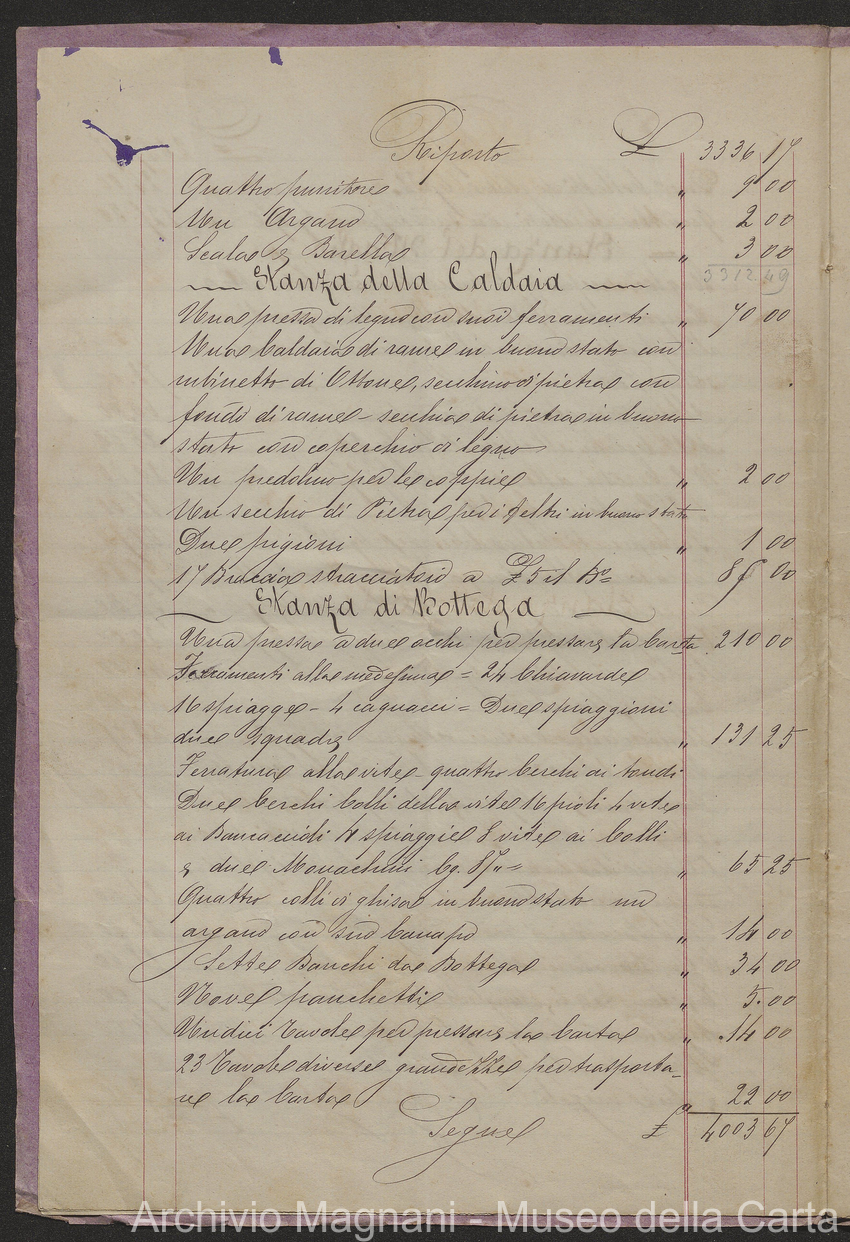 Riporto £ 3336 17
Quattro punitore " 9 00
Un Argano " 2 00
Scala e Barella " 3 00
3312 49
Stanza della Caldaia
Una pressa di legno con suoi ferramenti " 70 00
Una Caldaia di rame in buono stato con
rubinetto di Ottone, secchino di pietra con
fondo di rame - secchia di pietra in buono
stato con coperchio di legno
Un predolino per le coppie " 2 00
Un secchio di Pietra per i feltri in buono stato
Due pigioni " 1 00
17 Braccia stracciatoio a £ 5 il Bo 85 00
Stanza di Bottega
Una pressa a due occhi per pressare la Carta 210 00
Ferramenti alla medesima = 24 Chiavarde
16 spiagge - 4 cagnacci = Due spiaggioni
due squadre " 131 25
Ferratura alla vite quattro Cerchi ai tondi
Due Cerchi Colli della vite 16 pioli 4 vite
ai 4 spiaggie 8 vite ai Colli
e due Monachini Cg. 87 " = " 65 25
Quattro colli di ghisa in buono stato un
argano con suo Canapo " 14 00
Sette Banchi da Bottega " 34 00
Nove panchetti " 5.00
Undici Tavole per pressare la Carta " 14 00
23 Tavole diverse grandezze per trasporta-
re la Carta " 22 00
Segue £ 4003 67
Archivio Magnani - Museo della Carta